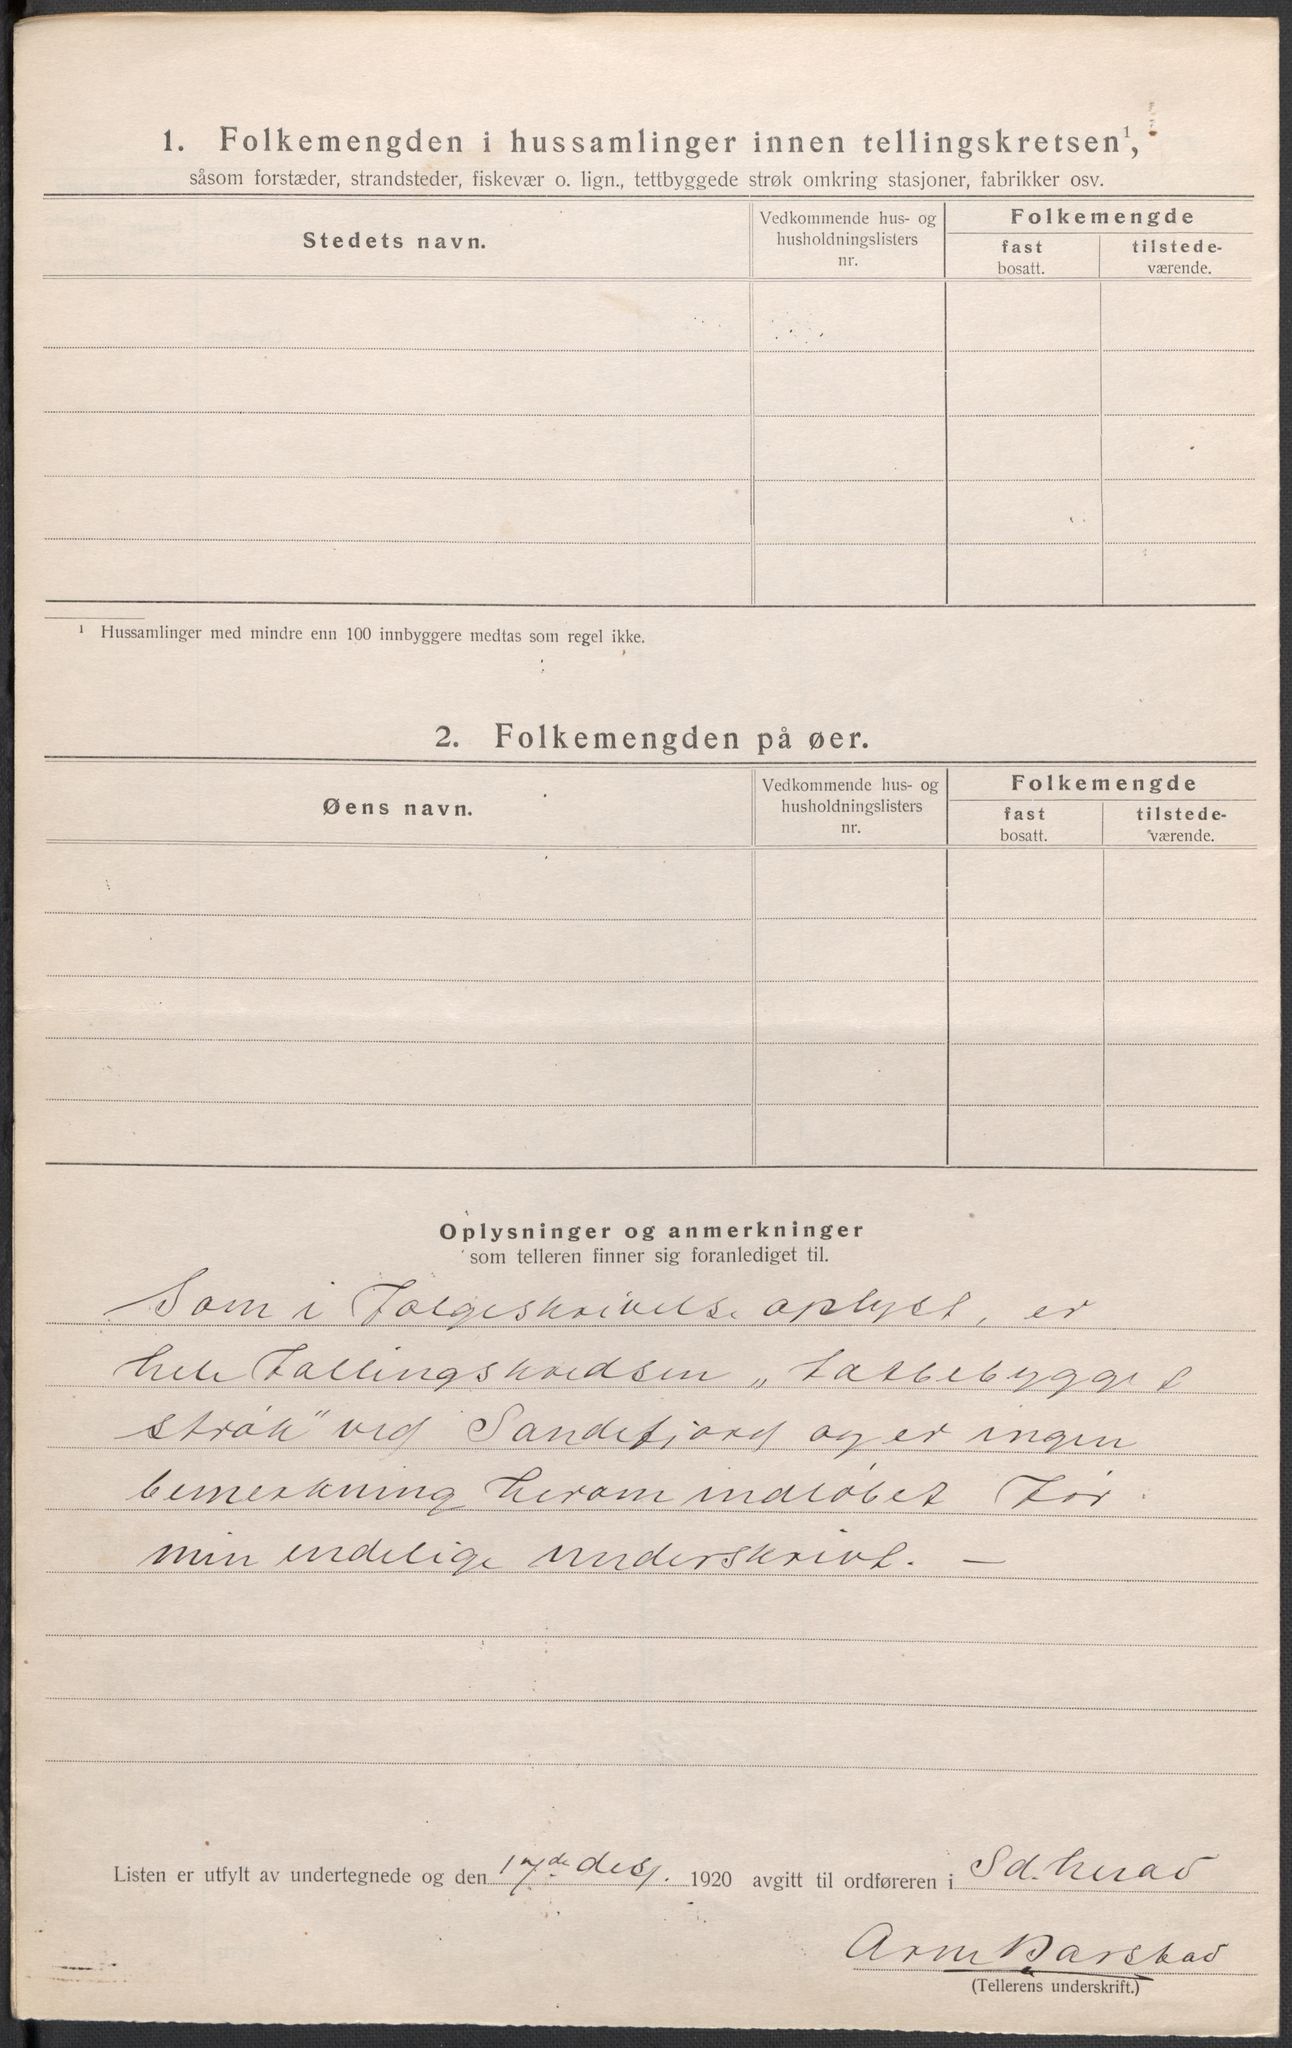 1. Folkemengden i hussamlinger innen tellingskretsen¹,
såsom forstæder, strandsteder, fiskevær o. lign., tettbyggede strøk omkring stasjoner, fabrikker osv.
Stedets navn.
Vedkommende hus- og
husholdningslisters
nr.
Folkemengde
fast
bosatt.
tilstede-
værende.
¹ Hussamlinger med mindre enn 100 innbyggere medtas som regel ikke.
2. Folkemengden på øer.
Øens navn.
Vedkommende hus- og
husholdningslisters
nr.
Folkemengde
fast
bosatt.
tilstede-
værende.
Oplysninger og anmerkninger
som telleren finner sig foranlediget til.
Som i Følgeskrivelse oplyst, er
hele Tællingskredsen „tætbebygget
strøk" ved Sandefjord og er ingen
bemerkning herom indløbet før
min endelige underskrivt. —
Listen er utfylt av undertegnede og den 17de des. 1920 avgitt til ordføreren i Sd. herad
Arne Barskad
(Tellerens underskrift.)